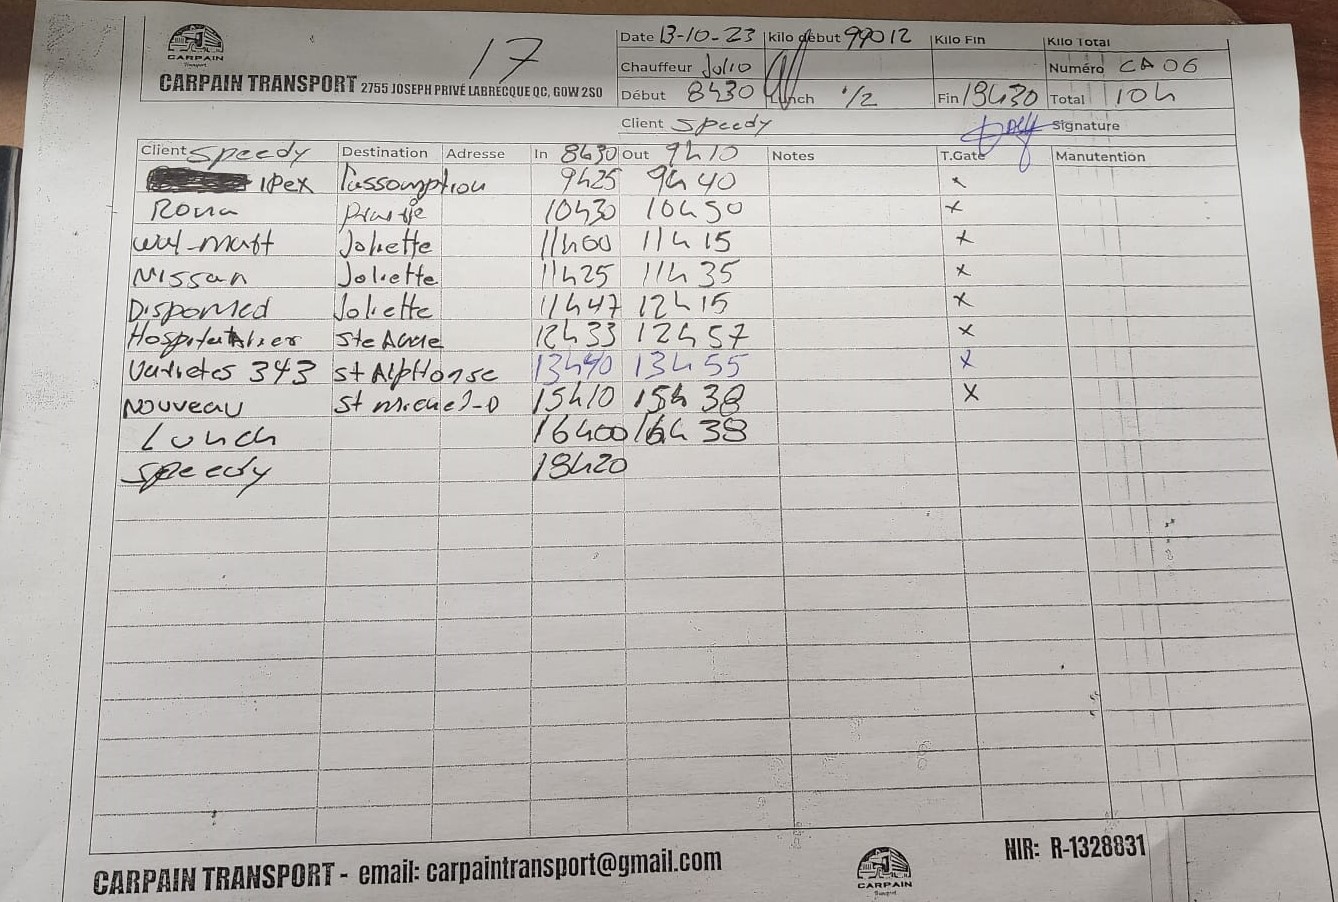 CARPAIN
Transport
17
CARPAIN TRANSPORT 2755 JOSEPH PRIVÉ LABRECQUE QC, G0W 2S0
Date 13-10-23 kilo début 99012 Kilo Fin Kilo Total
Chauffeur Julio Numéro CA 06
Début 8h30 Lunch 1/2 Fin 18h30 Total 10h
Client Speedy Signature
Client Speedy Destination Adresse In 8h30 Out 9h10 Notes T.Gate Manutention
IPex l'assomption 9h25 9h40 x
Rona 10h30 10h50 x
Wal-Matt Joliette 11h00 11h15 x
Nissan Joliette 11h25 11h35 x
Dispomed Joliette 11h47 12h15 x
Ste 12h33 12h57 x
Varietes 343 St Alphonse 13h40 13h55 x
Nouveau St Michel-D 15h10 15h38 x
Lunch 16h00 16h38
Speedy 18h20
CARPAIN TRANSPORT - email: carpaintransport@gmail.com
CARPAIN
Transport
NIR: R-1328831